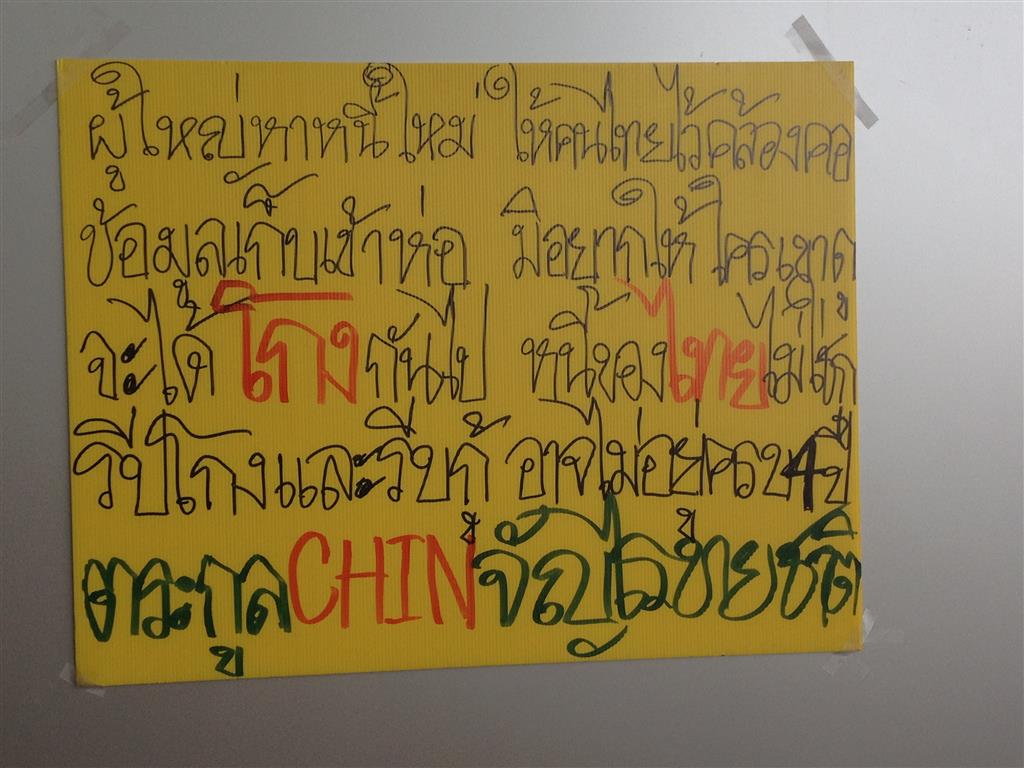 ผู้ใหญ่หาหนี้ใหม่ ให้คนไทยไว้คล้องคอ
ข้อมูลเก็บเข้าห่อ มิอยากให้ใครเขาดู
จะได้โกงกันไป หนี้ของไทยไม่ใช่กู
รีบโกงและรีบกู้ อาจไม่อยู่ครบ 4 ปี
ตระกูล CHIN จัญไรขายชาติ